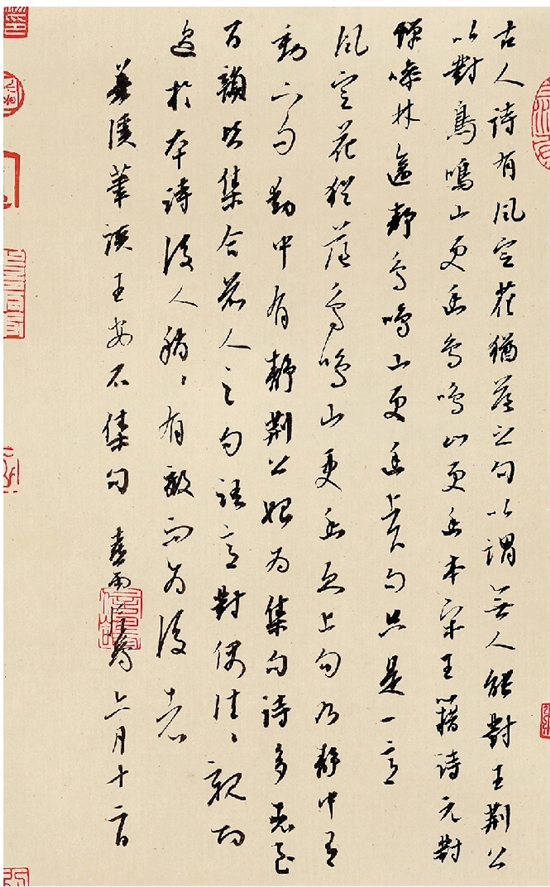 古人詩有風定花猶落之句以謂無人能對王荆公
以對鳥鳴山更幽鳥鳴山更幽本宋王籍詩元對
蟬噪林逾靜鳥鳴山更幽上下句只是一意
風定花猶落鳥鳴山更幽則上句乃靜中有
動下句動中有靜荆公始為集句詩多者至
百韻皆集合前人之句語意對偶往〻親切
過於本詩後人稍〻有效而為後者
夢溪筆談王安石集句 春雨 月十